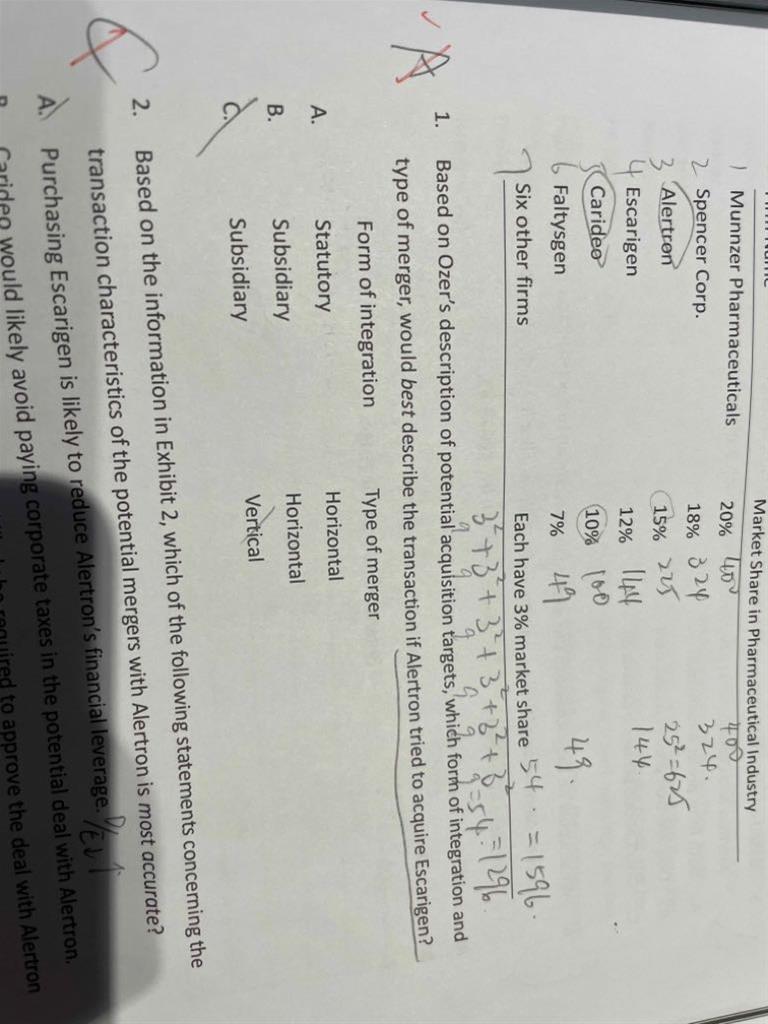 Market Share in Pharmaceutical Industry
1 Munnzer Pharmaceuticals 20% 400 400
2 Spencer Corp. 18% 324 324.
3 Alertron 15% 225 25²=625
4 Escarigen 12% 144 144.
5 Carideo 10% 100
6 Faltysgen 7% 49 49.
7 Six other firms Each have 3% market share 54. =1596.
3²+3²+3²+3²+3²+3²
9 9 9 9 9 9=54.=1296.
A
1. Based on Ozer's description of potential acquisition targets, which form of integration and
type of merger, would best describe the transaction if Alertron tried to acquire Escarigen?
Form of integration Type of merger
A. Statutory Horizontal
B. Subsidiary Horizontal
C. Subsidiary Vertical
2. Based on the information in Exhibit 2, which of the following statements concerning the
transaction characteristics of the potential mergers with Alertron is most accurate?
A. Purchasing Escarigen is likely to reduce Alertron's financial leverage. D/E↓↑
Carideo would likely avoid paying corporate taxes in the potential deal with Alertron.
required to approve the deal with Alertron